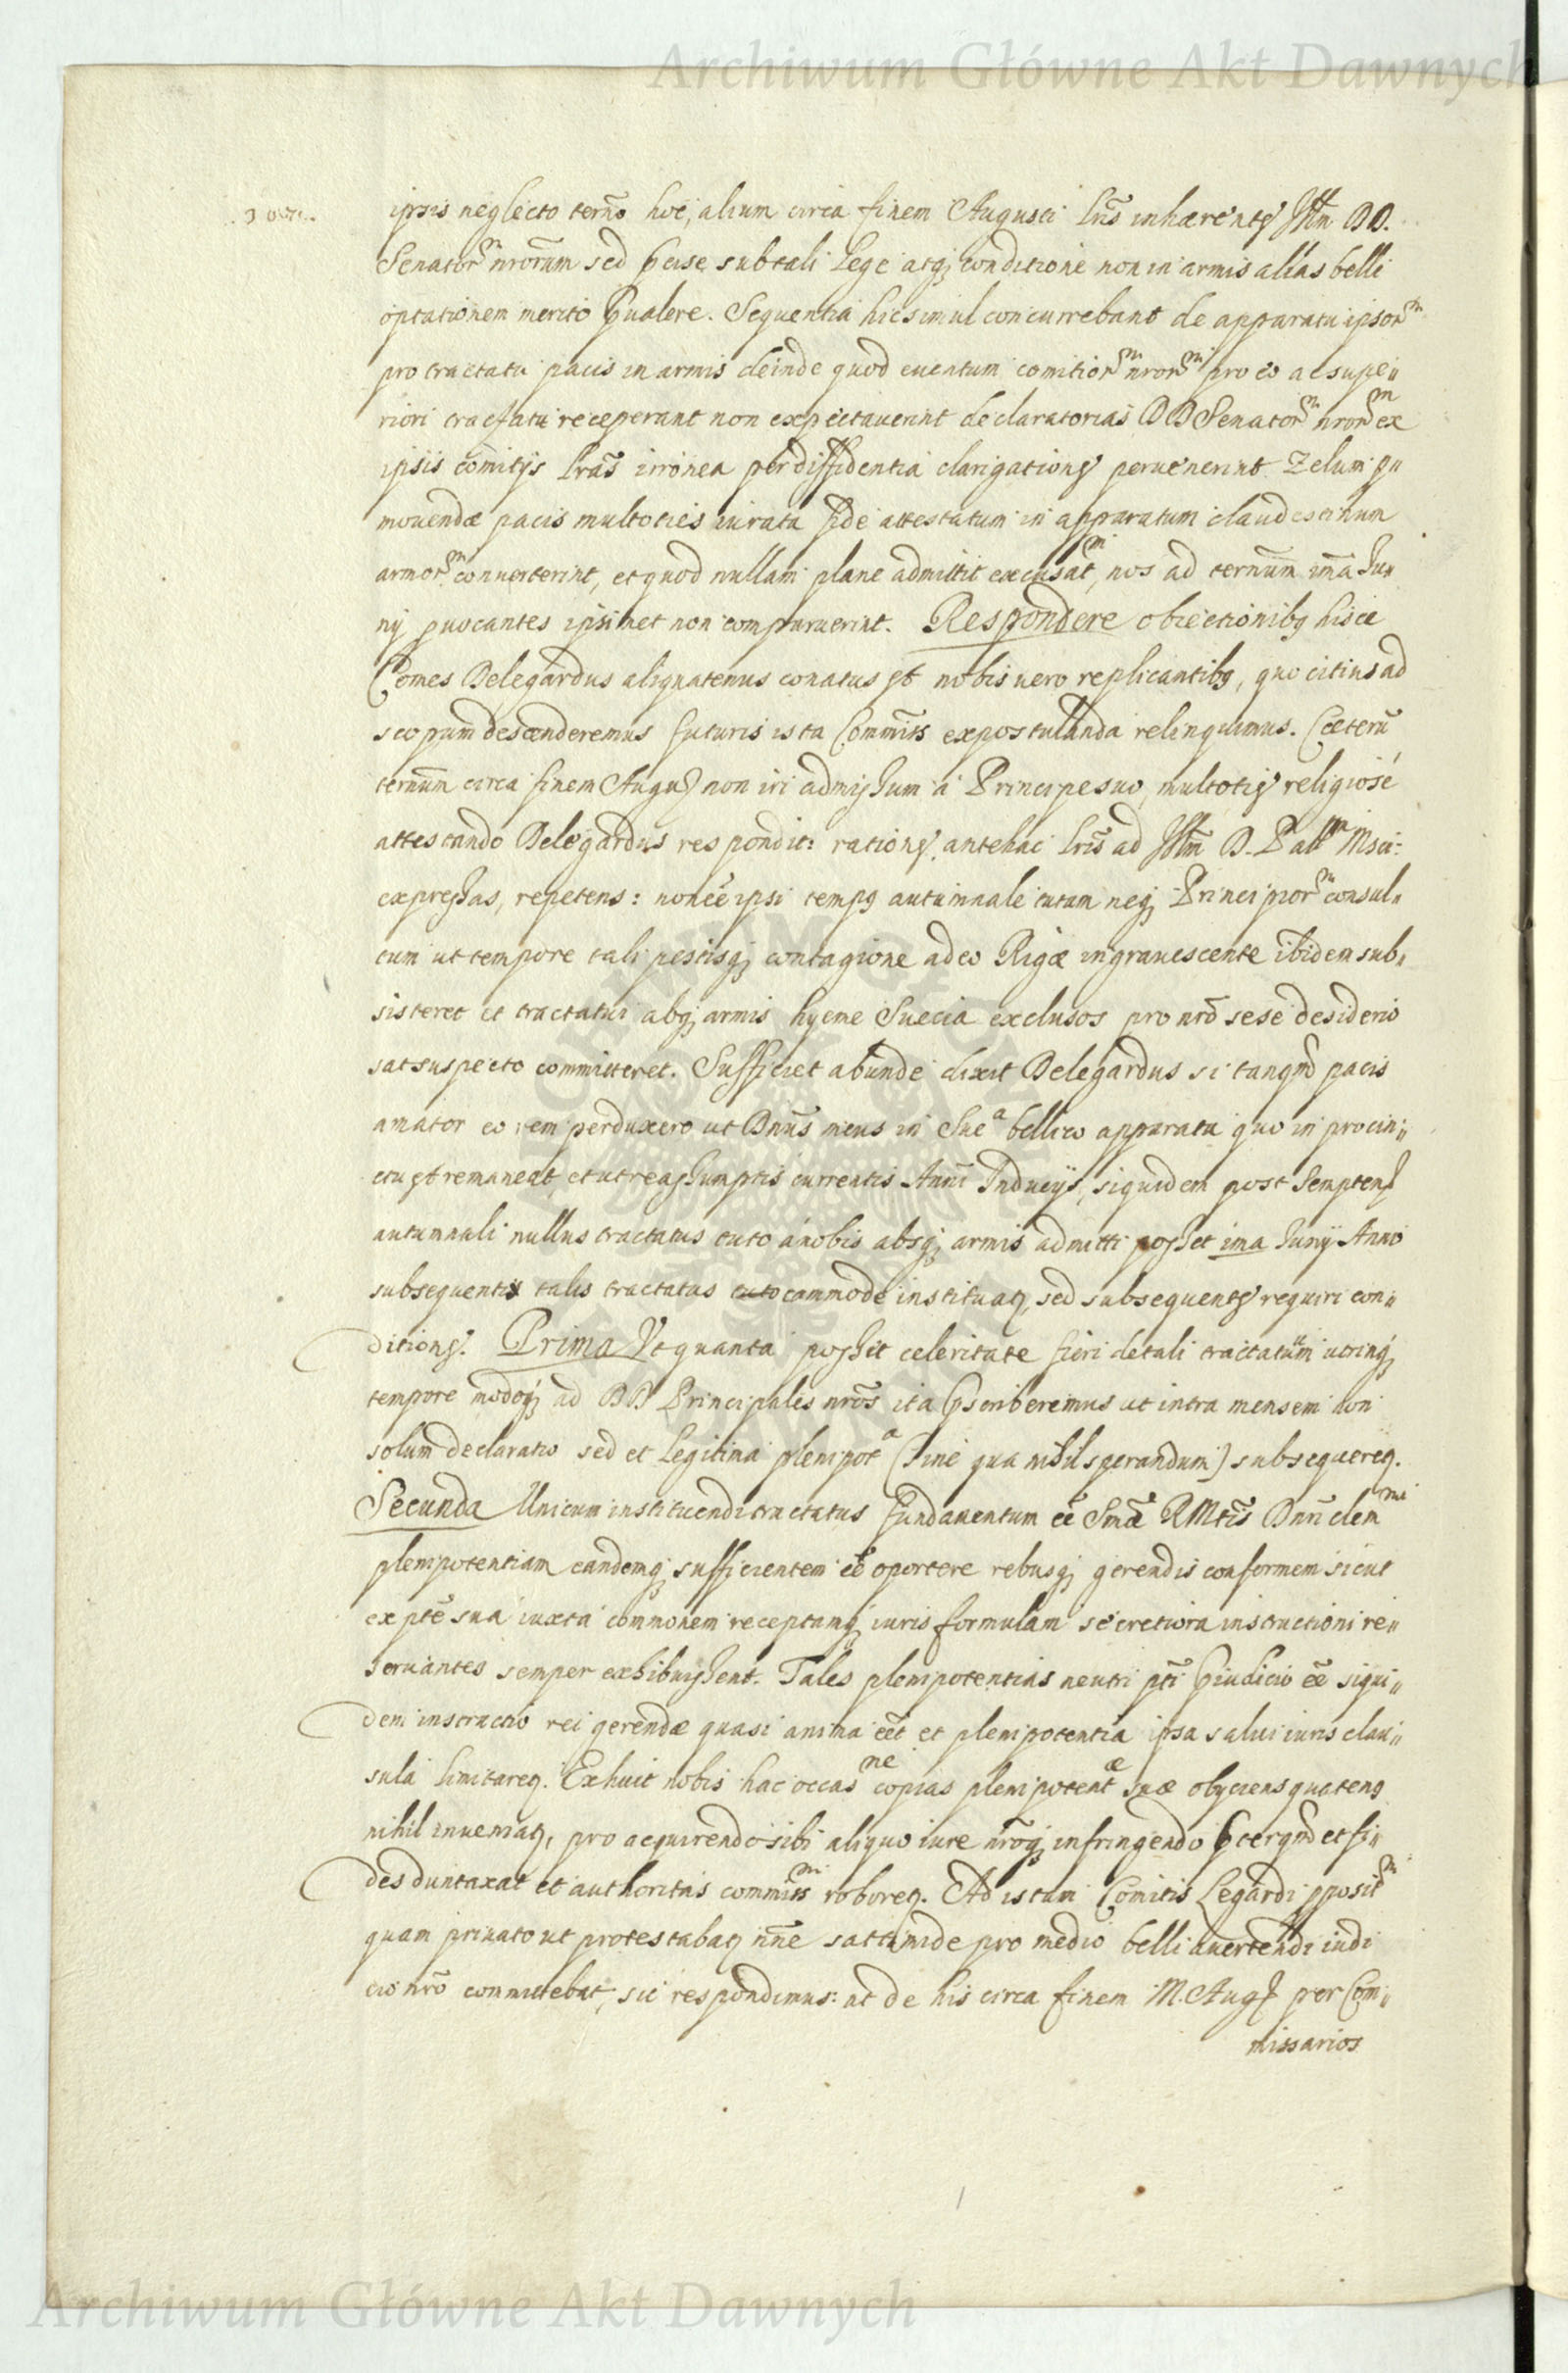 Archiwum Główne Akt Dawnych
ipsis neglecto termo hoc, alium circa finem Augusti lrīs inhaerentes Illm DD.
Senatorm nrorum sed sub tali lege atq conditione non in armis alias belli
optationem merito pualere. Sequentia hic simul concurrebant de apparatu ipsorm
pro tractatu pacis in armis deinde quod euentum comitiorm nrorm pro eo ac supe〃
riori tractatu receperant non expectauerint declaratorias DD Senatorm nrorm ex
ipsis comitijs lrās irronea per diffidentia clarigationes peruenerint. Zelum p〃
mouendæ pacis multoties iurata fide attestatum in apparatum clandestinum
armorm conuerterint, et quod nullam plane admittit excusatm, nos ad ternūm imā Ju〃
nij puocantes ipsimet non comparuerint. Respondere obiectionibq hisce
Comes Delegardus aliquatenus conatus st nobis uero replicantibq, quo citius ad
scopum descenderemus futuris ista Commīss expostulanda relinquimus. Cæterū
ternūm circa finem Augus non iri admissum a Principe suo, multoties religiosé
attestando Delegardus respondit: rationes antehac lrīs ad Illm D. Palm Msci:
expressas, repetens: non cē ipsi tempq autumnale tutum neq Principiorm consul〃
tum ut tempore tali pestisq contagione adeo Rigæ ingrauescente ibidem sub〃
sisteret et tractatui absq armis hyeme Suecia exclusos pro nrō sese desiderio
sat suspecto committeret. Sufficiet abunde dixit Delegardus si tanqm pacis
amator eo rem perduxero ut Dnūs meus in Suea bellico apparatu quo in procin〃
ctu st remaneat, et ut reassumptis currentis Anni Inducijs, siquidem post Septem
autumnali nullus tractatus tuto á nobis absq armis admitti posset ima Junij Anno
subsequentis talis tractatus tuto commode instituatq, sed subsequentes requiri con〃
ditiones. Prima Ut quanta possit celeritate fieri de tali tractatum utrinq
tempore modoq ad DD Principales nrōs ita pscriberemus ut intra mensem non
solum declaratio sed et legitima plenipota (sine qua nihil sperandum) subsequereq.
Secunda Unicum instituendi tractatus fundamentum cē Smæ RMtīs Dnī clemmi
plenipotentiam eandemq sufficientem cē oportere rebusq gerendis conformem sicut
ex ptē sua iuxta commonem receptamq iuris formulam secretiora instructioni re〃
seruantes semper exhibuissent. Tales plenipotentias neutri ptī piudicio cē siqui〃
dem instructio rei gerendæ quasi anima eēt et plenipotentia ipsa salui iuris clau〃
sula limitareq. Exhuit nobis hac occasne copias plenipotentæ suæ obijciens quatenq
nihil inueniatq, pro acquirendo sibi aliquo iure nrōq infringendo ptergm et fi〃
des duntaxat et authoritas commissm roboreq. Ad istam Comitis Legardi ppositm
quam priuato ut protestabatq nnē sat timide pro medio belli auertendi iudi
cio nrō committebat, sic respondimus: ut de his circa finem M. Aug per Com〃
missarios
Archiwum Główne Akt Dawnych